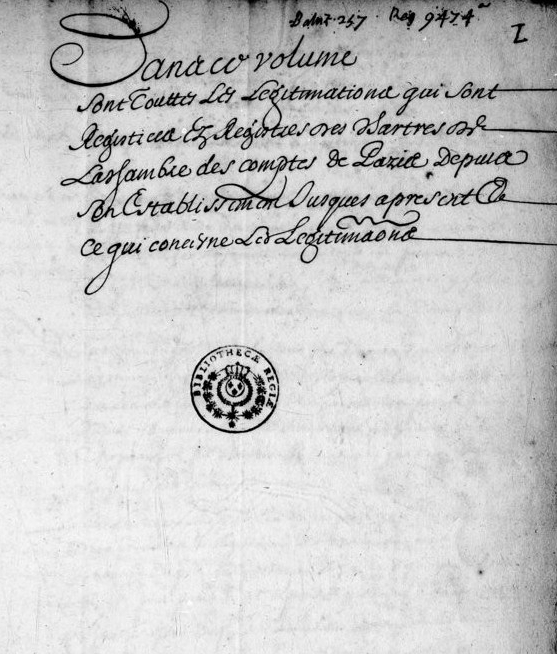 Baluz 257. Reg 9474ᵃ
I
Dans ce volume
sont Touttes Les Legitimations qui sont
Registrées Ez Registres des Chartres de
La chambre des comptes de Paris Depuis
son Establissement Jusques apresent En
ce qui concerne Les Legitimaons
BIBLIOTHECÆ REGIÆ